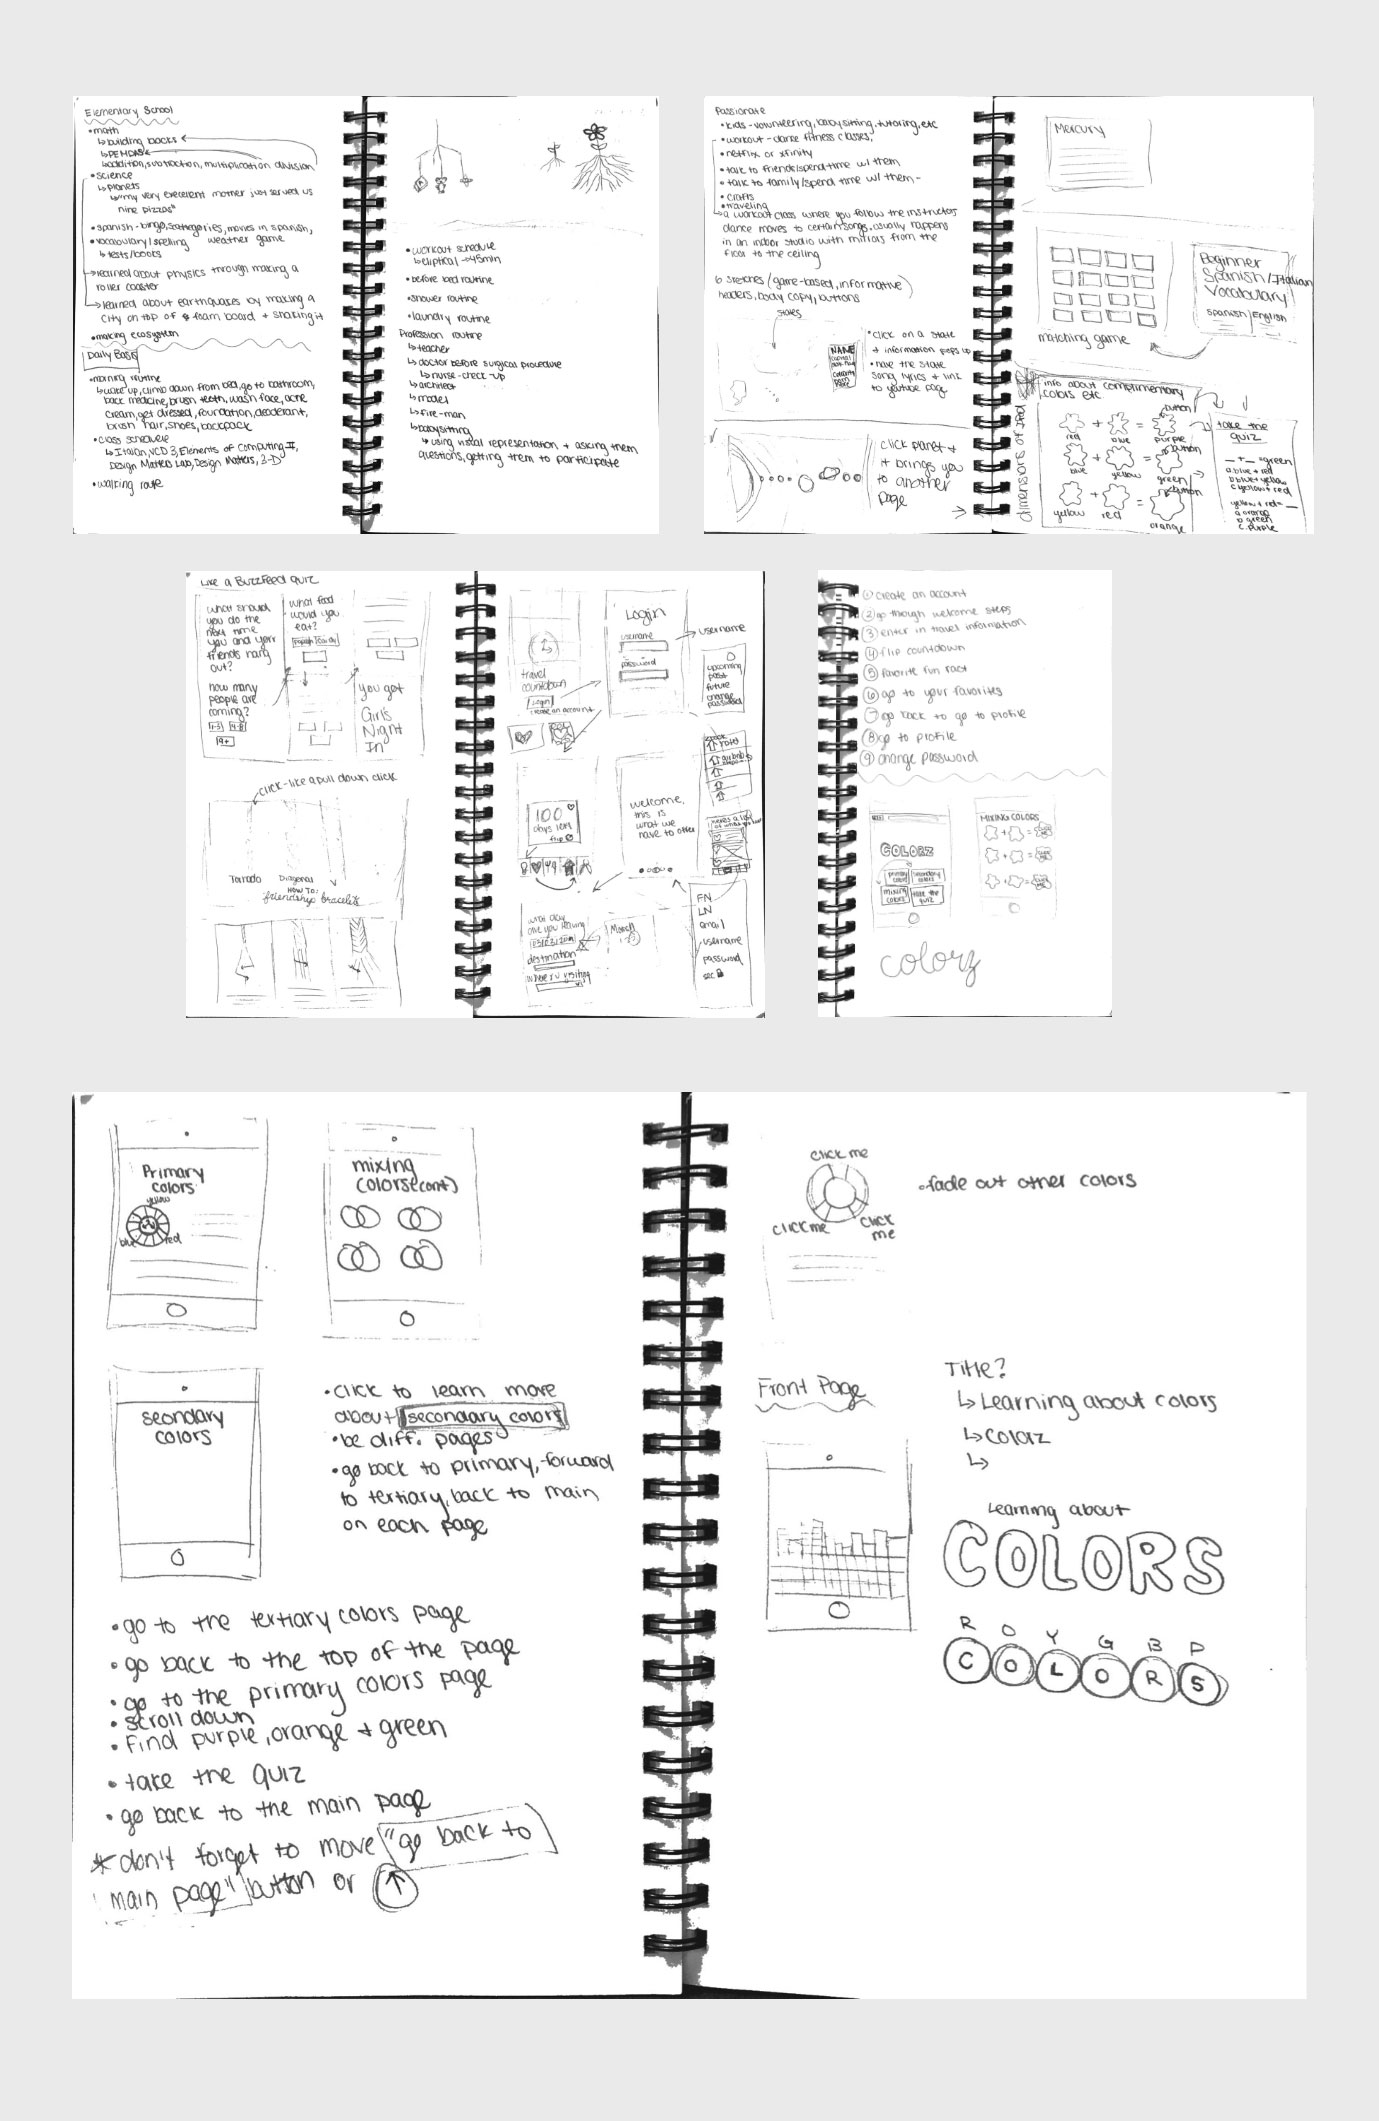 Elementary School
•math
↳building blocks
↳PEMDAS
↳addition, subtraction, multiplication division
•science
↳planets
↳"my very execerent mother just served us
nine pizzas"
•spanish-bingo, scattegories, movies in spanish,
•vocabulary/spelling weather game
↳tests/books
→learned about physics through making a
roller coaster
→learned about earthquakes by making a
city on top of a foam board + shaking it
•making ecosystem
Daily Basis
•morning routine
↳wake up, climb down from bed, go to bathroom,
back medicine, brush teeth, wash face, acne
cream, get dressed, foundation, deodorant,
brush hair, shoes, backpack
•class schedule
↳Italian, VCD 3, Elements of Computing II,
Design Matters Lab, Design Matters, 3-D
•walking route
•workout schedule
↳eliptical→45min
•before bed routine
•shower routine
•laundry routine
Profession routine
↳teacher
↳doctor before surgical procedure
↳nurse-check-up
↳architect
↳model
↳fire-man
↳babysitting
↳using visual representation + asking them
questions, getting them to participate
Passionate
•kids-volunteering, babysitting, tutoring, etc
•workout-dance fitness classes,
•netflix or xfinity
•talk to friends/spend time w/ them
•talk to family/spend time w/ them-
•crafts
•traveling
→a workout class where you follow the instructors
dance moves to certain songs, usually happens
in an indoor studio with mirrors from the
floor to the ceiling
6 sketches (game-based, informative)
headers, body copy, buttons
states
NAME
•click on a state
+ information pops up
•have the state
song lyrics + link
to youtube page
click planet +
it brings you
to another
page
→
Mercury
Beginner
Spanish/Italian
Vocabulary
Spanish|English
matching game
dimensions of iPad
info about complimentary
colors etc.
button
+ =
red blue purple
button
+ =
blue yellow green
button
+ =
yellow red orange
take the
quiz
_+_=green
a. blue + red
b. blue + yellow
c. yellow + red
yellow + red=_
a. orange
b. green
c. purple
Like a BuzzFeed quiz
what should
you do the
next time
you and your
friends hang
out?
how many
people are
coming?
1-3 4-8
9+
what food
would you
eat?
you got
Girl's
Night
In
click-like a pull down click
Tornado Diagonal
HOW TO:
friendship bracelets
travel
countdown
Login
create an account
Login
username
password
→username
upcoming
past
future
change
password
100
days left
flip
welcome,
this is
what we
have to offer
what day
are you leaving
destination
where r u visiting
March
FN
LN
email
username
password
sec
① create an account
② go through welcome steps
③ enter in travel information
④ flip countdown
⑤ favorite fun fact
⑥ go to your favorites
⑦ go back to go to profile
⑧ go to profile
⑨ change password
COLORZ
primary colors secondary colors
mixing colors take the quiz
MIXING COLORS
colorz
Primary
colors
yellow
blue red
mixing
colors(cont)
seondary
colors
•click to learn more
about secondary colors
•be diff. pages
•go back to primary, forward
to tertiary, back to main
on each page
•go to the tertiary colors page
•go back to the top of the page
•go to the primary colors page
•scroll down
•find purple, orange + green
•take the quiz
•go back to the main page
*don't forget to move "go back to
main page" button or ↑
click me
click me click me
•fade out other colors
Front Page
Title?
↳Learning about colors
↳Colorz
↳
Learning about
COLORS
R O Y G B P
C O L O R S